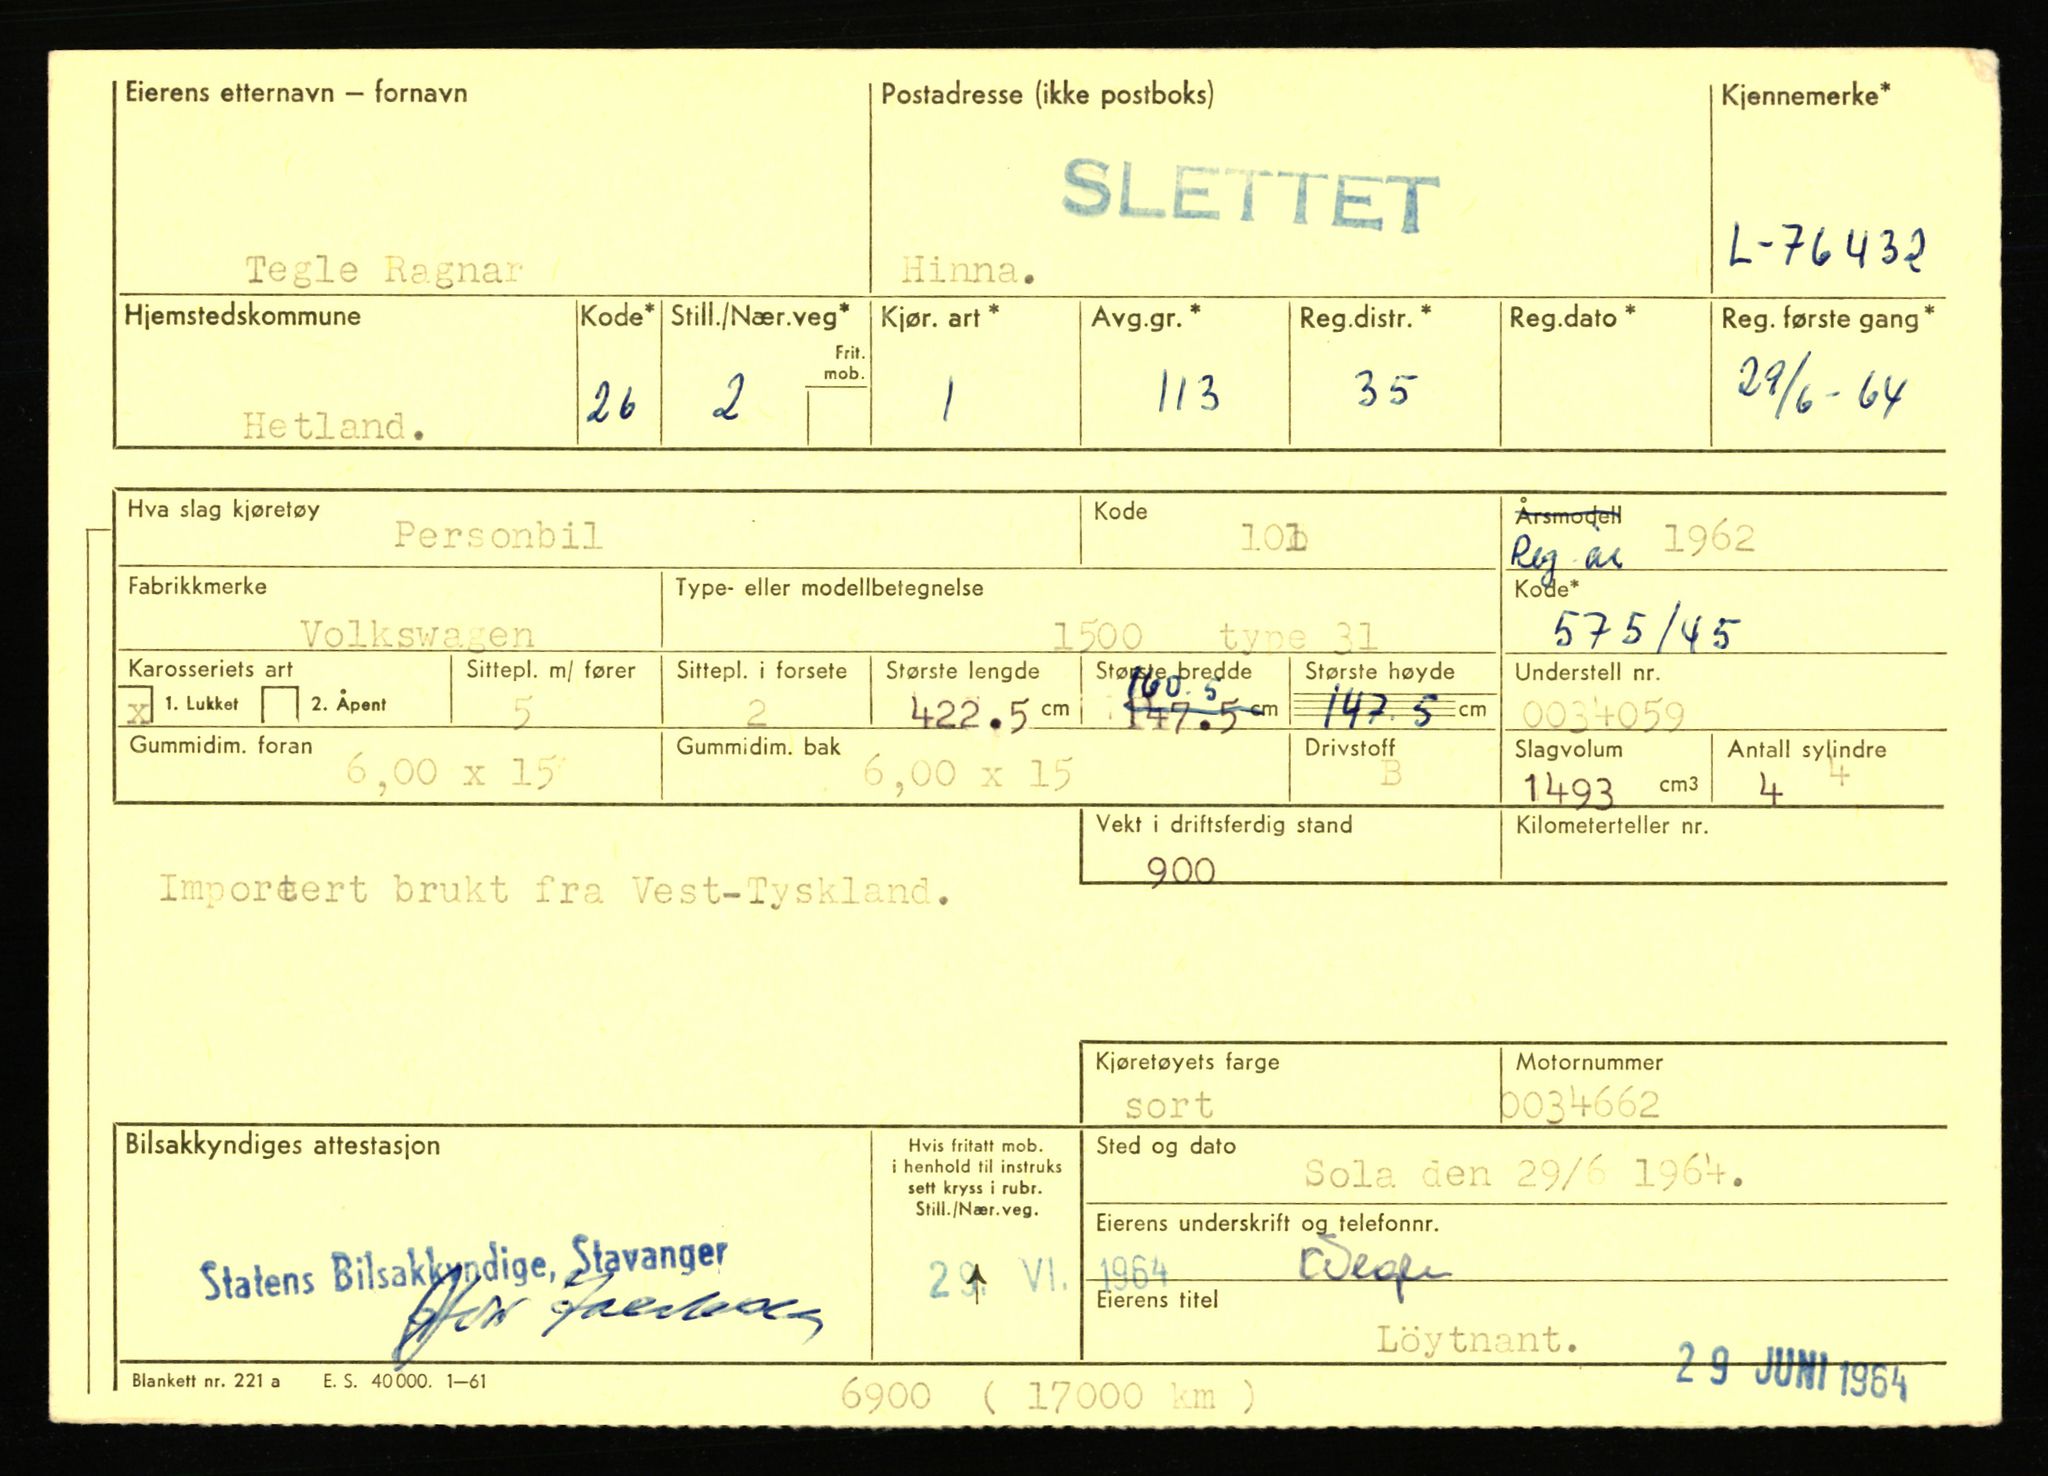 Eierens etternavn – fornavn
Postadresse (ikke postboks)
Kjennemerke*
SLETTET
Tegle Ragnar
Hinna.
L-76432
Hjemstedskommune
Kode*
Still./Nær.veg*
Kjør. art *
Avg.gr. *
Reg.distr. *
Reg.dato *
Reg. første gang *
Frit.
mob.
Hetland.
26
2
1
113
35
29/6-64
Hva slag kjøretøy
Personbil
Kode
101
Årsmodell
1962
Fabrikkmerke
Volkswagen
Type- eller modellbetegnelse
1500 type 31
Kode*
575/45
Karosseriets art
x 1. Lukket 2. Åpent
Sittepl. m/ fører
5
Sittepl. i forsete
2
Største lengde
422.5 cm
Største bredde
160.5
147.5 cm
Største høyde
147.5 cm
Understell nr.
0034059
Gummidim. foran
6,00 x 15
Gummidim. bak
6,00 x 15
Drivstoff
B
Slagvolum
1493 cm3
Antall sylindre
4 4
Vekt i driftsferdig stand
900
Kilometerteller nr.
Importert brukt fra Vest-Tyskland.
Kjøretøyets farge
sort
Motornummer
0034662
Bilsakkyndiges attestasjon
Statens Bilsakkyndige, Stavanger
Hvis fritatt mob.
i henhold til instruks
sett kryss i rubr.
Still./Nær.veg.
29. VI. 1964
Sted og dato
Sola den 29/6 1964.
Eierens underskrift og telefonnr.
Eierens titel
Löytnant.
29 JUNI 1964
Blankett nr. 221 a E. S. 40000. 1–61
6900 ( 17000 km )